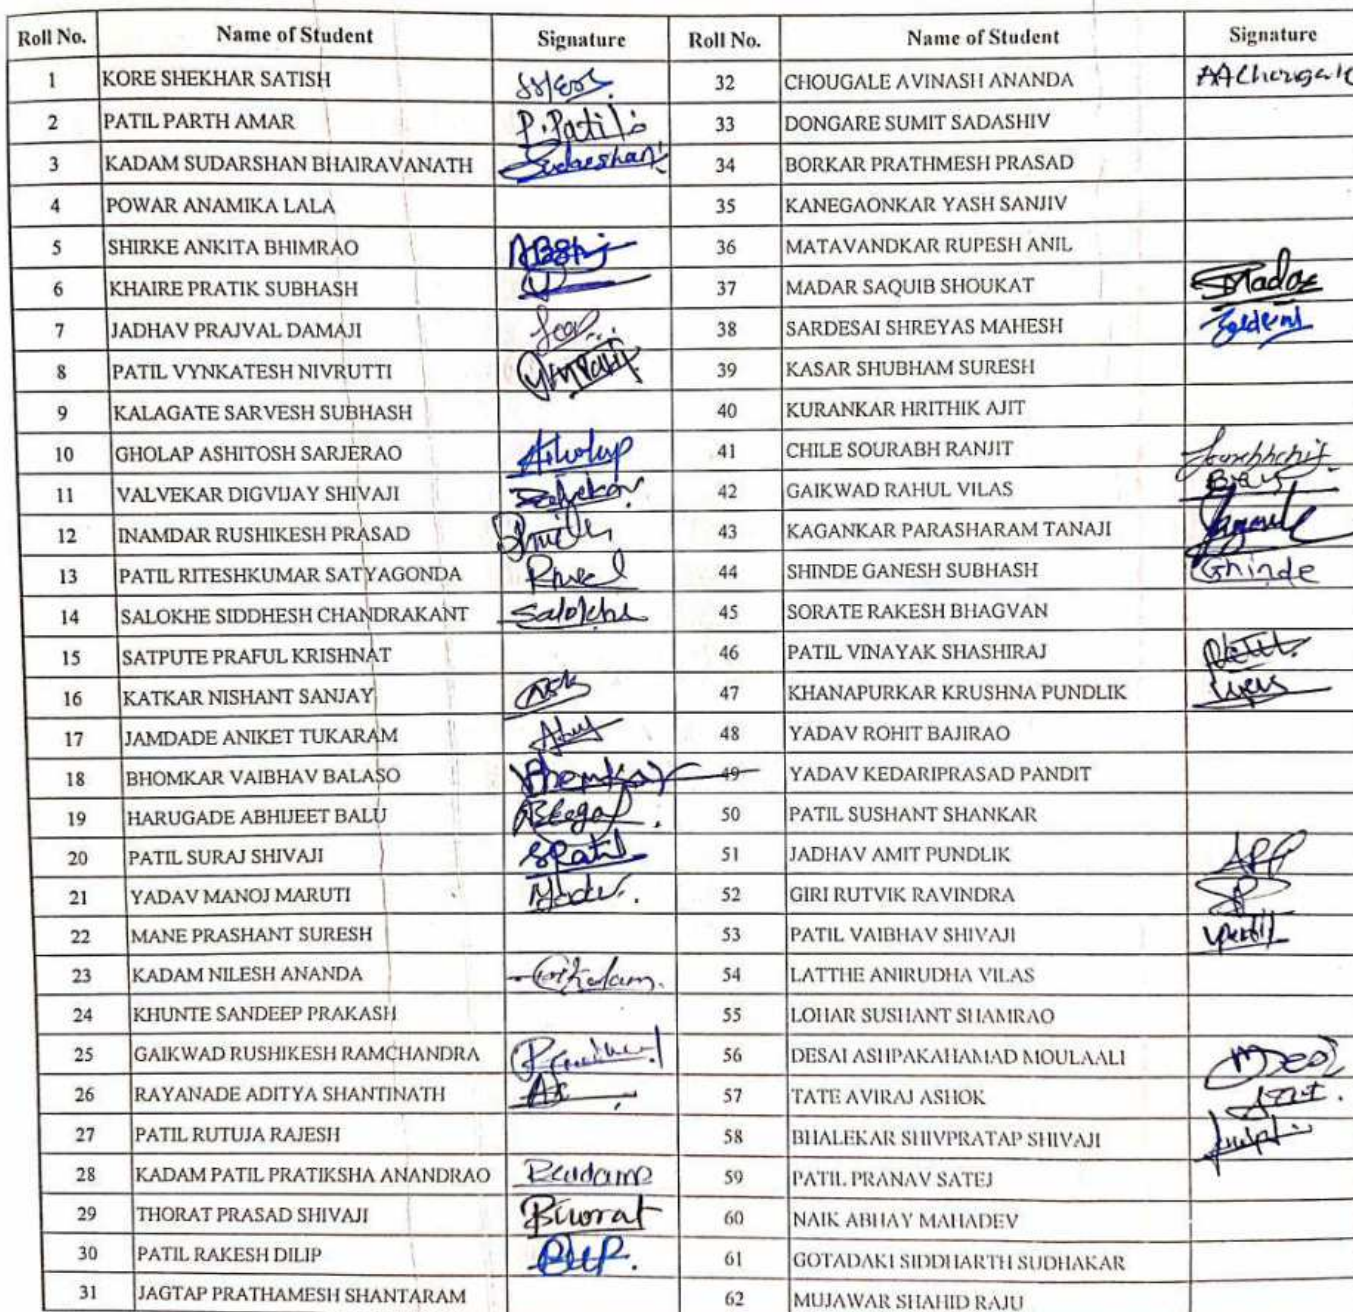 Roll No. Name of Student Signature Roll No. Name of Student Signature
1 KORE SHEKHAR SATISH 32 CHOUGALE AVINASH ANANDA AAChougale
2 PATIL PARTH AMAR P.Patil 33 DONGARE SUMIT SADASHIV
3 KADAM SUDARSHAN BHAIRAVANATH Sudarshan 34 BORKAR PRATHMESH PRASAD
4 POWAR ANAMIKA LALA 35 KANEGAONKAR YASH SANJIV
5 SHIRKE ANKITA BHIMRAO 36 MATAVANDKAR RUPESH ANIL
6 KHAIRE PRATIK SUBHASH 37 MADAR SAQUIB SHOUKAT
7 JADHAV PRAJVAL DAMAJI 38 SARDESAI SHREYAS MAHESH
8 PATIL VYNKATESH NIVRUTTI 39 KASAR SHUBHAM SURESH
9 KALAGATE SARVESH SUBHASH 40 KURANKAR HRITHIK AJIT
10 GHOLAP ASHITOSH SARJERAO 41 CHILE SOURABH RANJIT
11 VALVEKAR DIGVIJAY SHIVAJI 42 GAIKWAD RAHUL VILAS
12 INAMDAR RUSHIKESH PRASAD 43 KAGANKAR PARASHARAM TANAJI
13 PATIL RITESHKUMAR SATYAGONDA 44 SHINDE GANESH SUBHASH Ghinde
14 SALOKHE SIDDHESH CHANDRAKANT Salokhe 45 SORATE RAKESH BHAGVAN
15 SATPUTE PRAFUL KRISHNAT 46 PATIL VINAYAK SHASHIRAJ
16 KATKAR NISHANT SANJAY 47 KHANAPURKAR KRUSHNA PUNDLIK
17 JAMDADE ANIKET TUKARAM 48 YADAV ROHIT BAJIRAO
18 BHOMKAR VAIBHAV BALASO 49 YADAV KEDARIPRASAD PANDIT
19 HARUGADE ABHIJEET BALU 50 PATIL SUSHANT SHANKAR
20 PATIL SURAJ SHIVAJI SPatil 51 JADHAV AMIT PUNDLIK
21 YADAV MANOJ MARUTI 52 GIRI RUTVIK RAVINDRA
22 MANE PRASHANT SURESH 53 PATIL VAIBHAV SHIVAJI
23 KADAM NILESH ANANDA 54 LATTHE ANIRUDHA VILAS
24 KHUNTE SANDEEP PRAKASH 55 LOHAR SUSHANT SHAMRAO
25 GAIKWAD RUSHIKESH RAMCHANDRA 56 DESAI ASHPAKAHAMAD MOULAALI
26 RAYANADE ADITYA SHANTINATH 57 TATE AVIRAJ ASHOK
27 PATIL RUTUJA RAJESH 58 BHALEKAR SHIVPRATAP SHIVAJI
28 KADAM PATIL PRATIKSHA ANANDRAO 59 PATIL PRANAV SATEJ
29 THORAT PRASAD SHIVAJI 60 NAIK ABHAY MAHADEV
30 PATIL RAKESH DILIP 61 GOTADAKI SIDDHARTH SUDHAKAR
31 JAGTAP PRATHAMESH SHANTARAM 62 MUJAWAR SHAHID RAJU